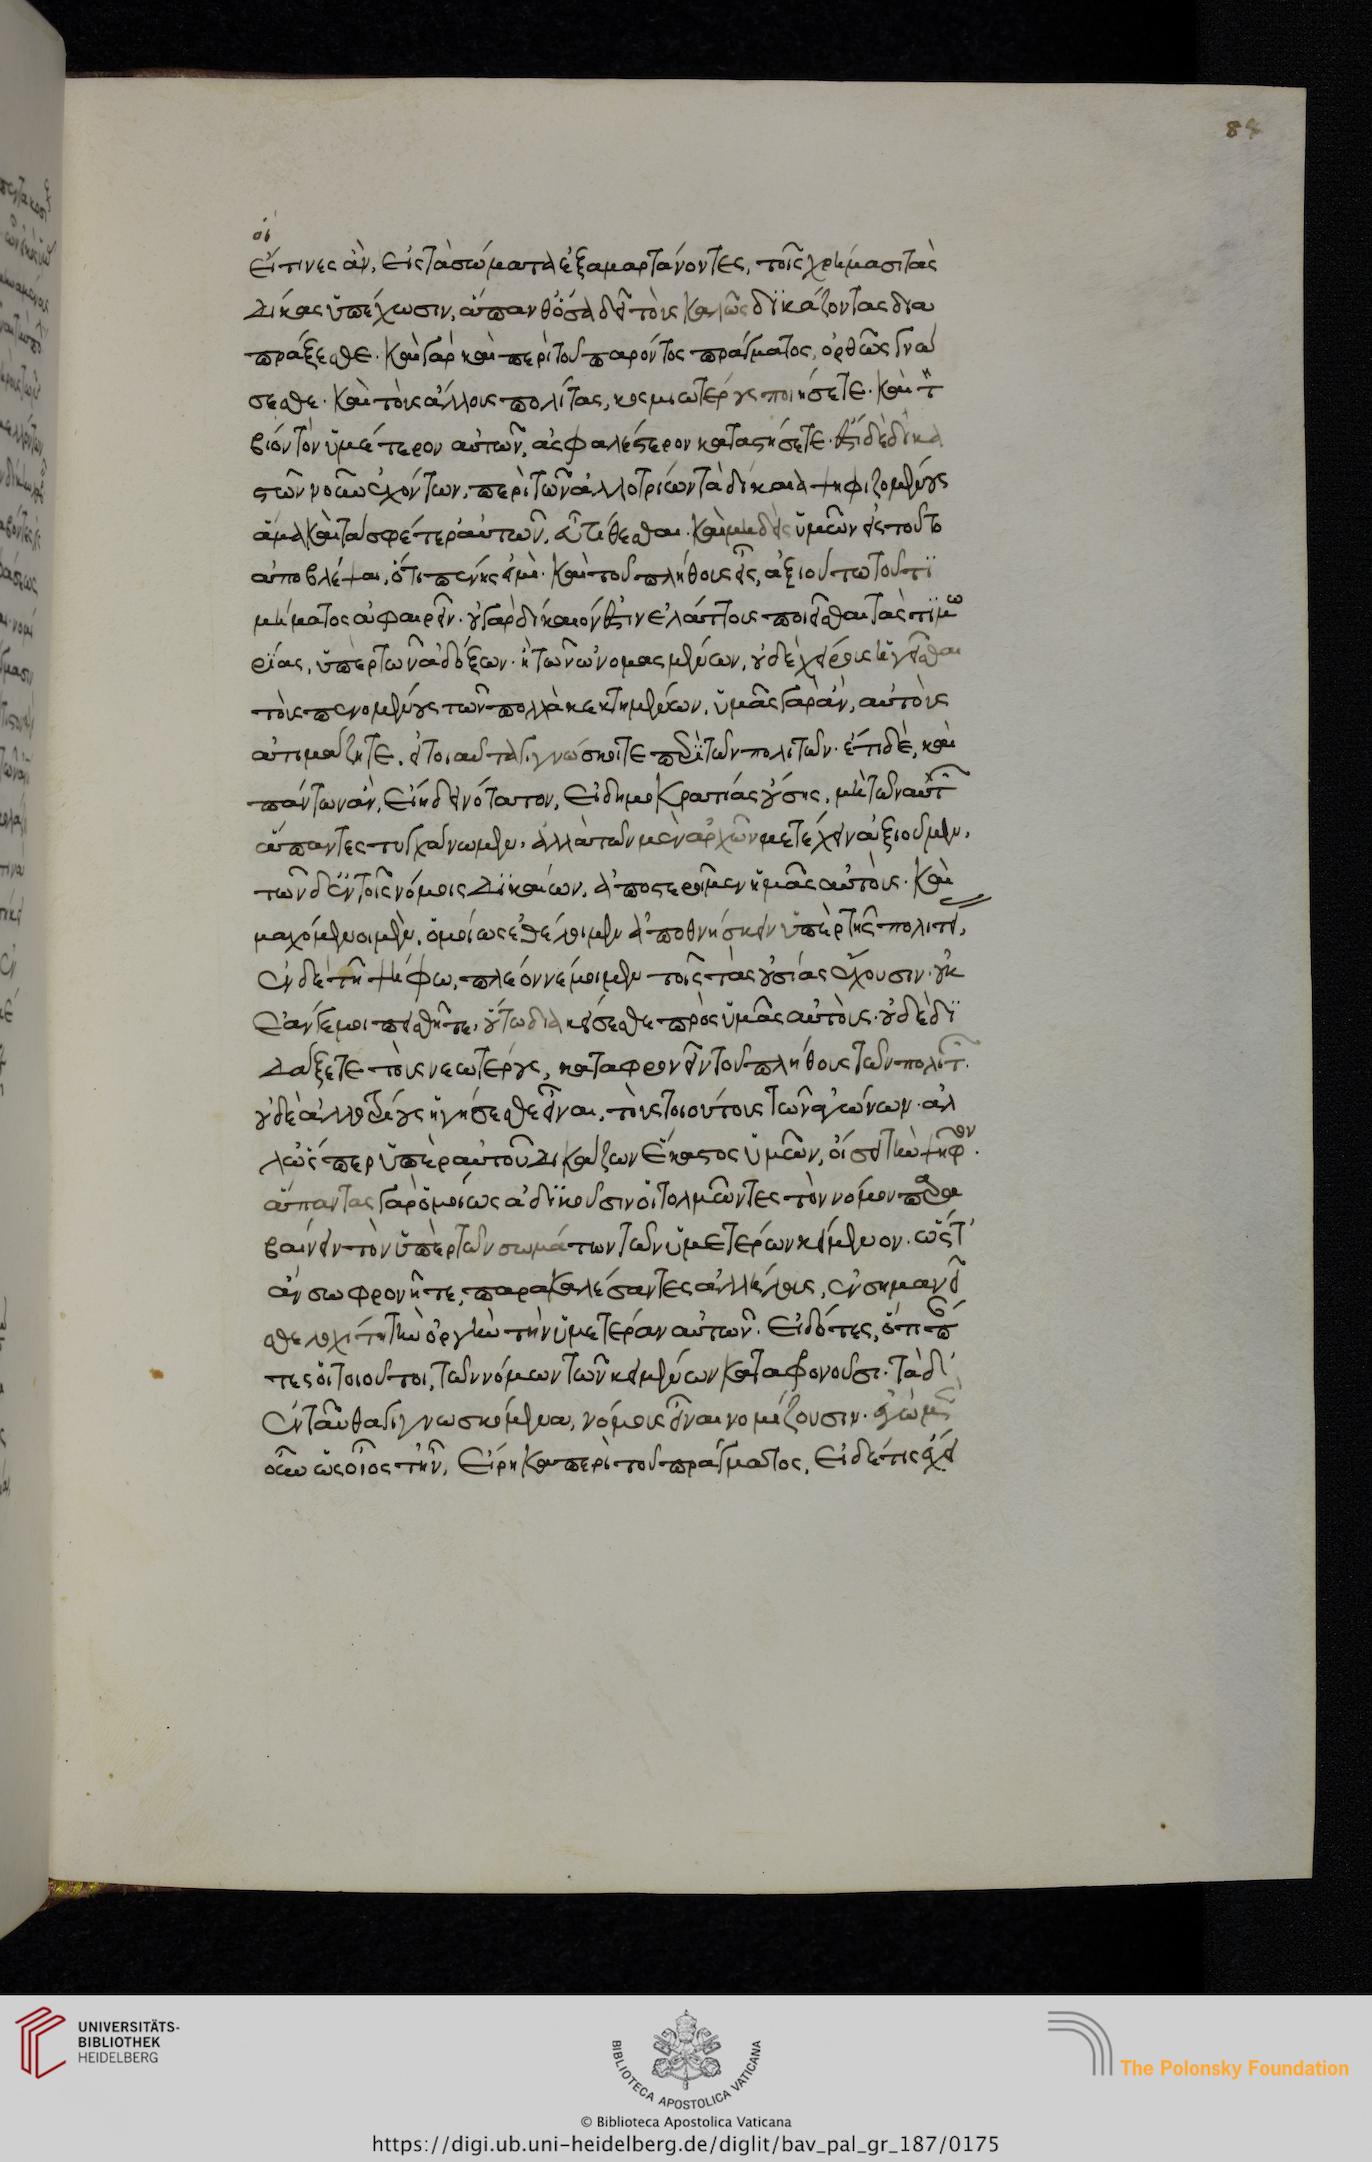 84
οἱ
εἴ τινες ἂν, εἰς τὰ σώματα ἐξαμαρτάνοντες, τοῖς χρήμασι τὰς
δίκας ὑπέχωσιν, ἅπανθ' ὅσα δεῖ τοὺς καλῶς δικάζοντας δια
πράξεσθε. καὶ γὰρ καὶ περὶ τοῦ παρόντος πράγματος, ὀρθῶς γνώ
σεσθε. καὶ τοὺς ἄλλους πολίτας, κοσμιωτέρους ποιήσετε. καὶ τὸν
βίον τὸν ὑμέτερον αὐτῶν, ἀσφαλέστερον καταστήσετε. ἔστι δὲ δικα
στῶν νοῦν ἐχόντων, περὶ τῶν ἀλλοτρίων τὰ δίκαια ψηφιζομένους
ἅμα καὶ τὰ σφέτερ' αὐτῶν, εὖ τίθεσθαι. καὶ μηδεὶς ὑμῶν εἰς τοῦτο
ἀποβλέψαι, ὅτι πένης εἰμὶ. καὶ τοῦ πλήθους εἷς, ἀξιούτω τοῦ τι
μήματος ἀφαιρεῖν. οὐ γὰρ δίκαιόν ἐστιν ἐλάττους ποιεῖσθαι τὰς τιμω
ρίας, ὑπὲρ τῶν ἀδόξων. ἢ τῶν ὠνομασμένων, οὐδὲ χείρους ἡγεῖσθαι
τοὺς πενομένους τῶν πολλὰ κεκτημένων. ὑμᾶς γὰρ ἂν, αὐτοὺς
ἀτιμάζητε, εἰ τοιαῦτα γιγνώσκοιτε περὶ τῶν πολιτῶν. ἔτι δὲ, καὶ
πάντων ἂν, εἴη δεινότατον, εἰ δημοκρατίας οὔσης, μὴ τῶν αὐτῶν
ἅπαντες τυγχάνωμεν. ἀλλὰ τῶν μὲν ἀρχῶν μετέχειν ἀξιοῦμεν.
τῶν δ' ἐν τοῖς νόμοις δικαίων, ἀποστεροῖμεν ἡμᾶς αὐτούς. καὶ
μαχόμενοι μὲν, ὁμοίως ἐθέλοιμεν ἀποθνήσκειν ὑπὲρ τῆς πολιτεί,
ἐν δὲ τῇ ψήφω, πλέον νέμοιμεν τοῖς τὰς οὐσίας ἔχουσιν. οὐκ
ἐάν γ' ἐμοὶ πεισθῆτε, οὕτω διακείσεσθε πρὸς ὑμᾶς αὐτούς. οὐδὲ δι
δάξετε τοὺς νεωτέρους, καταφρονεῖν τοῦ πλήθους τῶν πολιτῶν.
οὐδὲ ἀλλοτρίους ἡγήσεσθε εἶναι, τοὺς τοιούτους τῶν ἀγώνων. ἀλ
λ' ὥσπερ ὑπὲρ αὐτοῦ δικάζων ἕκαστος ὑμῶν, οἴσει τὴν ψῆφον.
ἅπαντας γὰρ ὁμοίως ἀδικοῦσιν οἱ τολμῶντες τὸν νόμον παρα
βαίνειν τὸν ὑπὲρ τῶν σωμάτων τῶν ὑμετέρων κείμενον. ὥστ'
ἂν σωφρονῆτε, παρακαλέσαντες ἀλλήλους, ἐνσημανεῖ
σθε λοχίτη τὴν ὀργὴν τὴν ὑμετέραν αὐτῶν. εἰδότες, ὅτι πάν
τες οἱ τοιοῦτοι, τῶν νόμων τῶν κειμένων καταφρονοῦσι. τὰ δ'
ἐνταῦθα γιγνωσκόμενα, νόμους εἶναι νομίζουσιν. ἐγὼ μὲν
οὖν ὡς οἷός τ' ἦν, εἴρηκα περὶ τοῦ πράγματος, εἰ δέ τις ἔχει
UNIVERSITÄTS-
BIBLIOTHEK
HEIDELBERG
BIBLIOTECA APOSTOLICA VATICANA
The Polonsky Foundation
© Biblioteca Apostolica Vaticana
https://digi.ub.uni-heidelberg.de/diglit/bav_pal_gr_187/0175